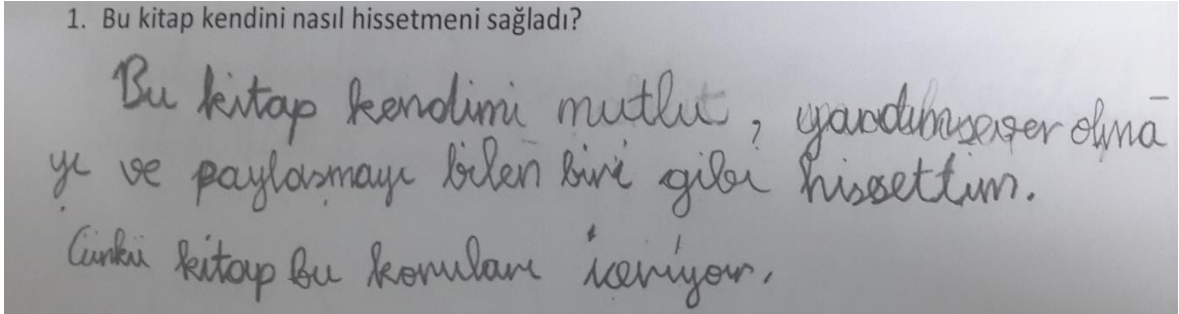 1. Bu kitap kendini nasıl hissetmeni sağladı?
Bu kitap kendimi mutlu, yardımsever olma
yı ve paylaşmayı bilen biri gibi hissettim.
Çünkü kitap bu konuları içeriyor.